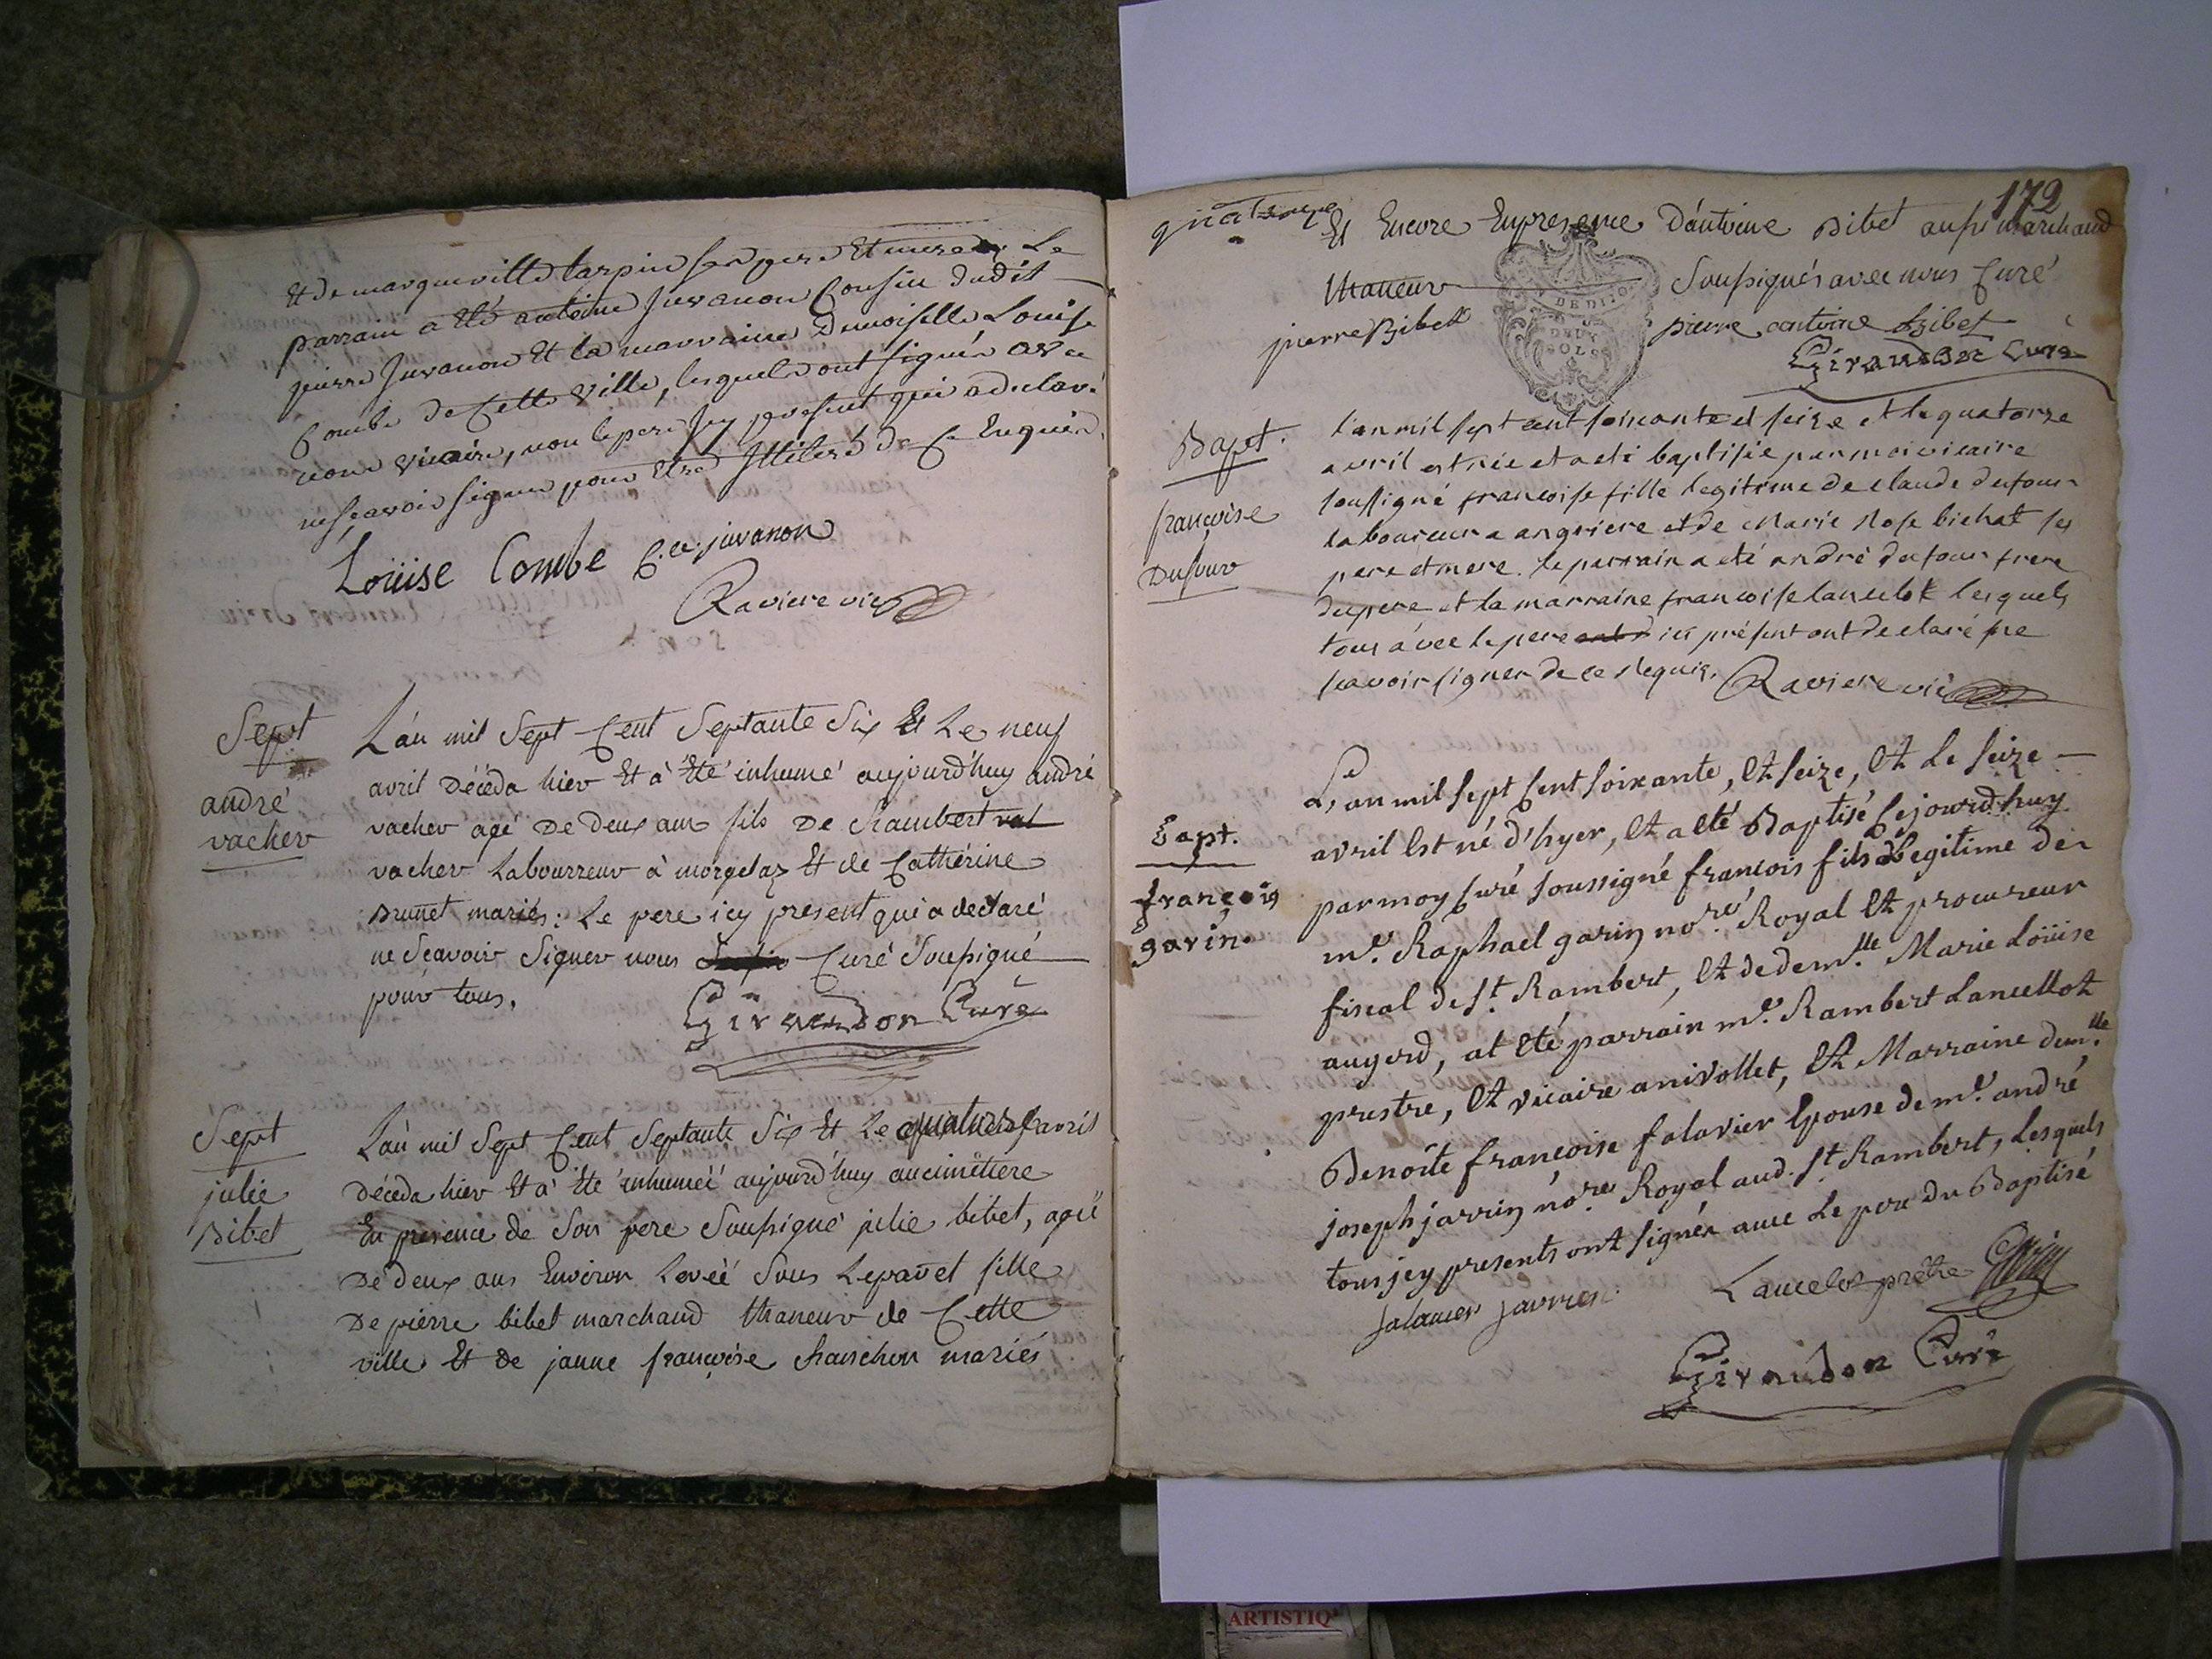 Et de margueritte tarpin ses pere Et mere Le
parrain a Eté antoine Juvanon Cousin dudit
pierre Juvanon Et la marraine Demoiselle Louise
Combe de Cette ville, lesquels ont signés avec
nous vicaire, non le pere Jcy present qui a declaré
ne sçavoir signer pour Etre Illiteré de Ce Enquis.
Loüise Combe juvanon
Raviere vic
Sept
andré
vacher
L'an mil Sept Cent Septante Six Et Le neuf
avril Décéda hier Et à Eté inhumé aujourd'huy andré
vacher agé De Deux ans fils De Rambert val
vacher Labourreur à morgelaz Et de Cathérine
Brunet mariés: Le pere icy présent qui a declaré
ne Sçavoir Signer nous Curé Soussigné
pour tous.
Giraudon Curé
Sept
julie
Bibet
L'an mil Sept Cent Septante Six Et Le quatorze avril
Décéda hier Et à Eté inhumée aujourd'huy au cimétiere
En présence de Son pere Soussigné julie bibet, agée
De deux ans Environ Levéé Sous Le fille
De pierre bibet marchand thaneur de Cette
ville Et de janne françoise franchon mariés
172
quatorze
Et Encore En presence D'antoine Bibet aussi marchand
thaneur Soussignés avec nous Curé
pierre Bibet pierre antoine Bibet
Giraudon Curé
DEUX SOLS
Bapt.
françoise
Dufour
l'an mil sept cent soixante et seize et le quatorze
avril est née et a eté baptisée par moi vicaire
soussigné francoise fille legitime de claude dufour
laboureur a angriere et de Marie Rose bichat ses
pere et mere. le parrain a eté andré dufour frere
du pere et la marraine francoise lancelot lesquels
tous avec le pere ici présent ont declaré ne
scavoir signer de ce Requis. Raviere vic
Bapt.
françois
garin.
L'an mil sept Cent soixante, Et seize, Et Le seize
avril Est né d'hyer, Et a eté Baptisé Cejourd'huy
par moy Curé soussigné francois fils Legitime de
me. Raphael garin nore. Royal Et procureur
fiscal de st. Rambert, Et de demlle. Marie Loüise
augerd, at Eté parrain me. Rambert Lancellot
prestre, Et vicaire a nivollet, Et Marraine demlle.
Benoite francoise falavier Epouse de me. andré
joseph jarrin nore. Royal aud. st Rambert, Lesquels
tous jcy presents ont signés avec Le pere du Baptisé
falavier jarrin Lancelot prêtre Garin
Giraudon Curé
ARTISTIQ